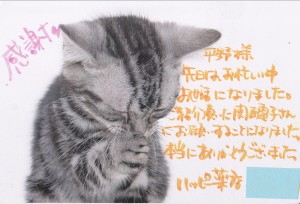 感謝
平野様
先日は、お忙い中
お世話になりました。
ご紹介頂いた
さんにお願いすることになりました。
本当にありがとうございました
ハッピー薬店